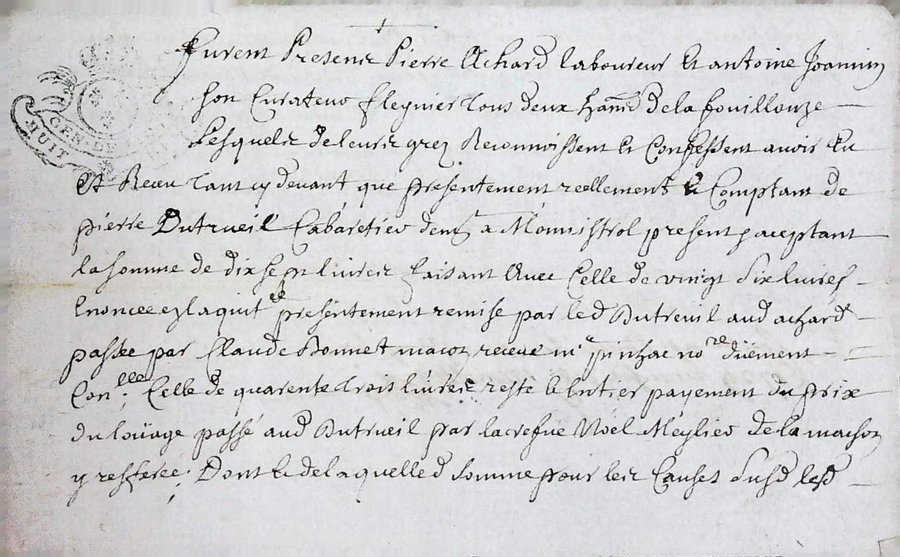 GEN. DE
HUIT
furent Presens Pierre Achard laboureur Et antoine Joannin
son Curateur fleynier tous deux hamd de la fouillouze
Lesquels de leurs grez Reconnoissent Et Confessent avoir Eu
Et Receu tant cy devant que presentement reellement Et Comptant de
pierre Dutrueil Cabaretier demt a Monnistrol present acceptant
la somme de dix sept livres faisant Avec Celle de vingt six livres
Enoncée laquitce presentement remise par led Dutreuil aud achard
passée par Claude Bonnet macon receue me no.re düement
Con.llée Celle de quarente trois livres reste Et Entier payement du prix
du loüage passé aud Dutrueil par Noël Meylier de la maison
y refferée Dont Et de laquelle d somme pour les Causes susd lesd